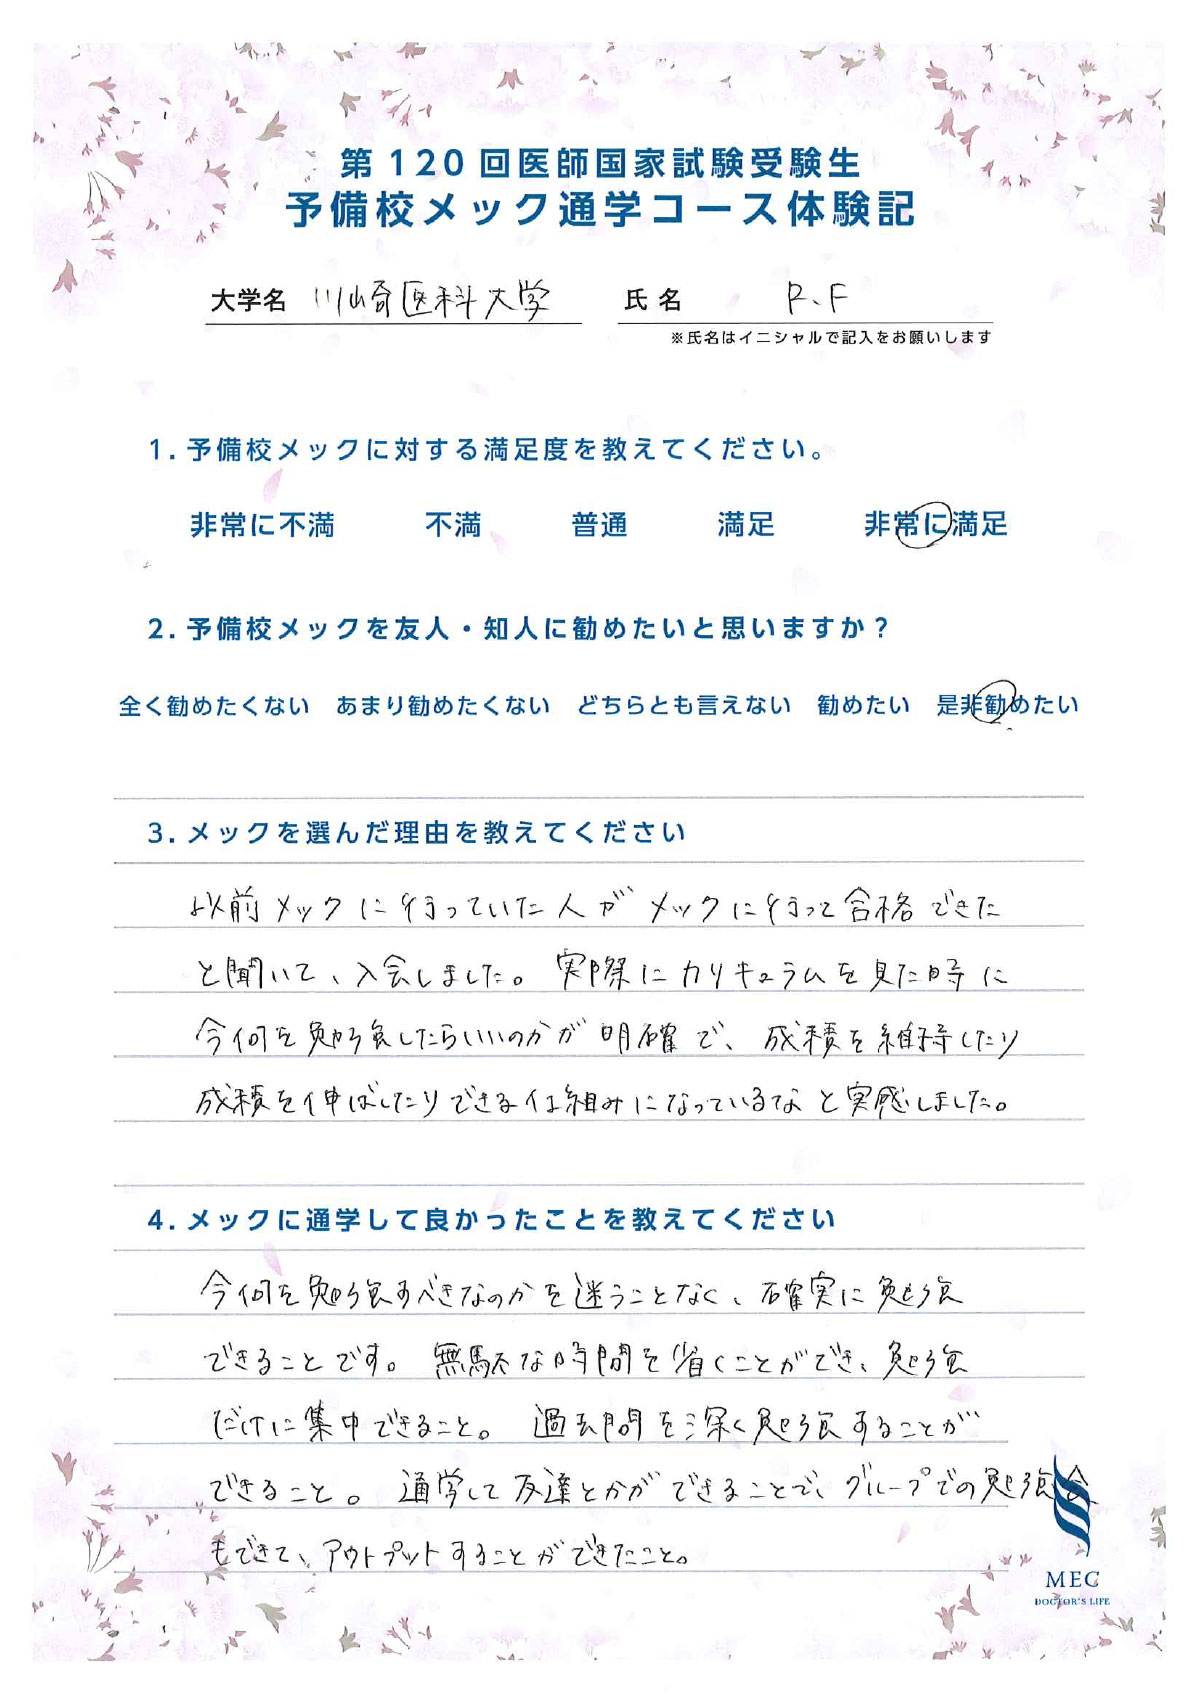 第120回医師国家試験受験生
予備校メック通学コース体験記
大学名 川崎医科大学 氏名 R.F
※氏名はイニシャルで記入をお願いします
1. 予備校メックに対する満足度を教えてください。
非常に不満 不満 普通 満足 非常に満足
2. 予備校メックを友人・知人に勧めたいと思いますか？
全く勧めたくない あまり勧めたくない どちらとも言えない 勧めたい 是非勧めたい
3. メックを選んだ理由を教えてください
以前メックに行っていた人がメックに行って合格できた
と聞いて、入会しました。実際にカリキュラムを見た時に
今何を勉強したらいいのかが明確で、成績を維持したり
成績を伸ばしたりできる仕組みになっているなと実感しました。
4. メックに通学して良かったことを教えてください
今何を勉強すべきなのかを迷うことなく、確実に勉強
できることです。無駄な時間を省くことができ、勉強
だけに集中できること。過去問を深く勉強することが
できること。通学して友達とかができることで、グループでの勉強会
もできて、アウトプットすることができたこと。
MEC
DOCTOR'S LIFE